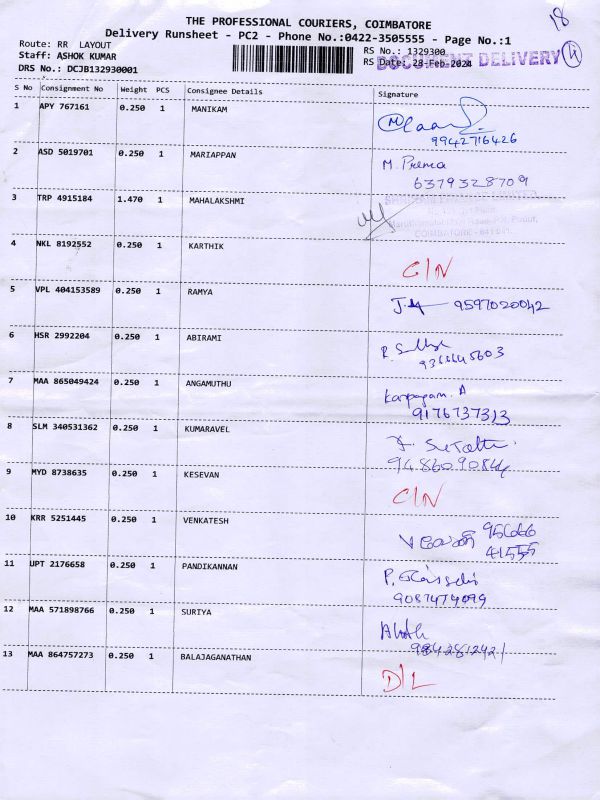 18
THE PROFESSIONAL COURIERS, COIMBATORE
Delivery Runsheet - PC2 - Phone No.:0422-3505555 - Page No.:1
Route: RR LAYOUT
RS No.: 1329300
Staff: ASHOK KUMAR
RS Date: 28-Feb-2024
DOCUMENT DELIVERY
DRS No.: DCJB132930001
S No Consignment No Weight PCS Consignee Details Signature
1 APY 767161 0.250 1 MANIKAM
9942716426
2 ASD 5019701 0.250 1 MARIAPPAN M. Prema
6379328709
3 TRP 4915184 1.470 1 MAHALAKSHMI
COIMBATORE - 641
4 NKL 8192552 0.250 1 KARTHIK
C/N
5 VPL 404153589 0.250 1 RAMYA
9597020042
6 HSR 2992204 0.250 1 ABIRAMI
7 MAA 865049424 0.250 1 ANGAMUTHU
Karpagam. A
9176737313
8 SLM 340531362 0.250 1 KUMARAVEL
9486090844
9 MYD 8738635 0.250 1 KESEVAN
C/N
10 KRR 5251445 0.250 1 VENKATESH
95666
41555
11 UPT 2176658 0.250 1 PANDIKANNAN
9087474099
12 MAA 571898766 0.250 1 SURIYA
9842812421
13 MAA 864757273 0.250 1 BALAJAGANATHAN
D/L